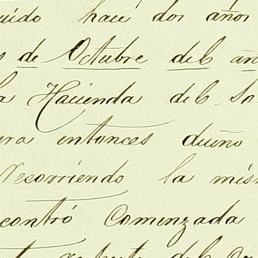 hace dos años
de Octubre del
Hacienda del
entonces dueño
Recorriendo la
Comenzada